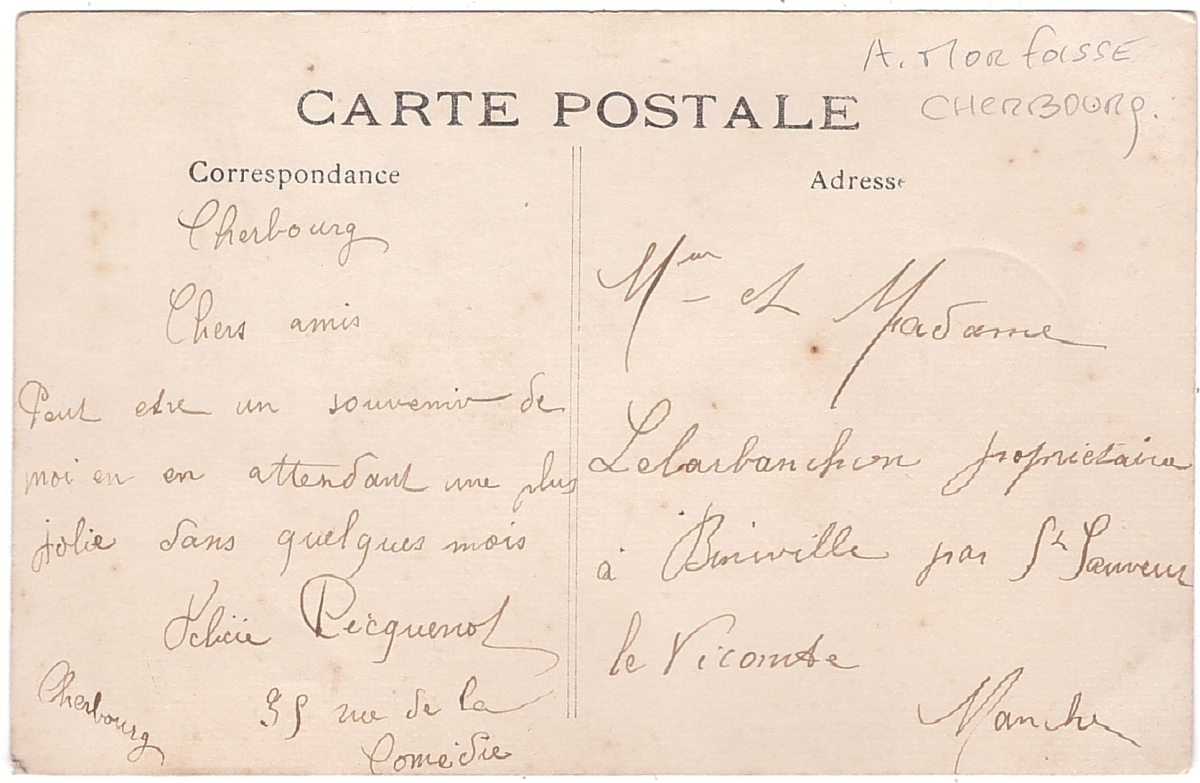 A. MORFASSE
CHERBOURG.
CARTE POSTALE
Correspondance
Cherbourg
Chers amis
Peut etre un souvenir de
moi en en attendant une plus
jolie dans quelques mois
Felicie Picquenot
Cherbourg
35 rue de la
Comédie
Adresse
Meur et Madame
Lelarbanchon propriétaire
à Biniville par St Sauveur
le Vicomte
Manche